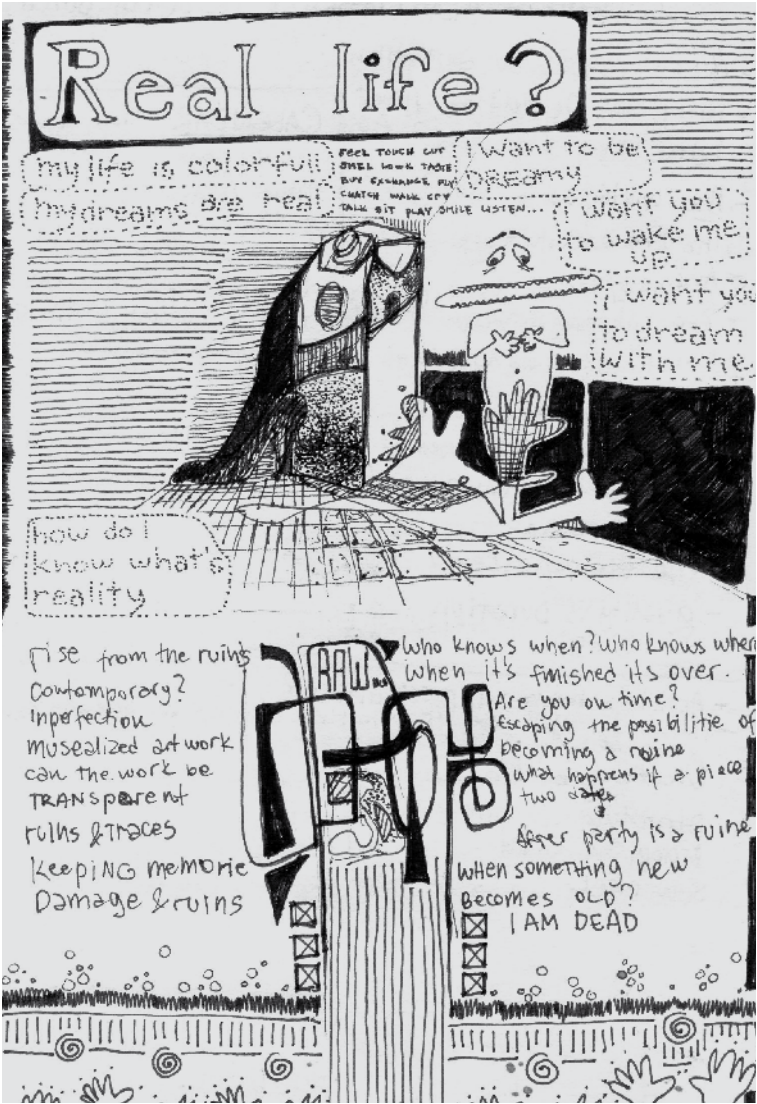 Real life?
my life is colorfull
my dreams are real
FEEL TOUCH CUT
SMEL LOOK TASTE
BUY EXCHANGE FLY
CHATCH WALK CRY
TALK SIT PLAY SMILE LISTEN...
I want to be
DREAMY
I want you
to wake me
up
I want you
to dream
with me
how do I
know what's
reality
rise from the ruins
Contomporary?
Inperfection
musealized art work
can the work be
TRANSparent
ruins & traces
Keeping memorie
Damage & ruins
RAW
Who knows when? Who knows when
when it's finished it's over.
Are you on time?
Escaping the possibilitie of
becoming a ruine
what happens if a piece
two
After party is a ruine
when something new
Becomes OLD?
I AM DEAD